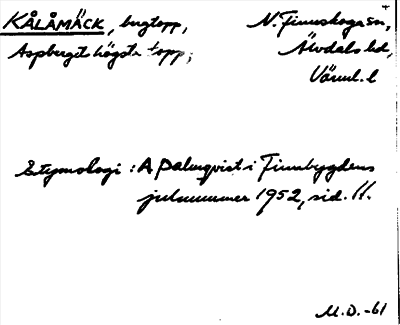 KÅLÅMÄCK, bergtopp,
Aspberget högsta topp;
N. Finnskoga sn,
Älvdals hd,
Värml. l
Etymologi: A Palmqvist i Finnbygdens
julnummer 1952, sid. 11.
M.D.-61